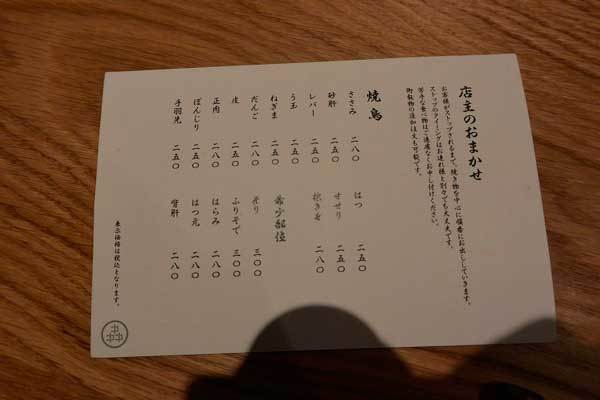 店主のおまかせ
お客様がストップされるまで、焼き物を中心に順番にお出ししていきます。
ストップのタイミングはお連れ様と別々でも大丈夫です。
苦手な食べ物はご遠慮なくお申し付けください。
御飯物の追加注文も可能です。
焼鳥
ささみ 二八〇
砂肝 二五〇
レバー 二五〇
うま 二五〇
ねぎま 二八〇
だんご 二八〇
皮 二五〇
正肉 二八〇
ぼんじり 二五〇
手羽先 二五〇
はつ 二五〇
せせり 二五〇
抱き身 二八〇
希少部位
そり 三〇〇
ふりそで 三〇〇
はらみ 二八〇
はつ元 二八〇
背肝 二八〇
表示価格は税込となります。